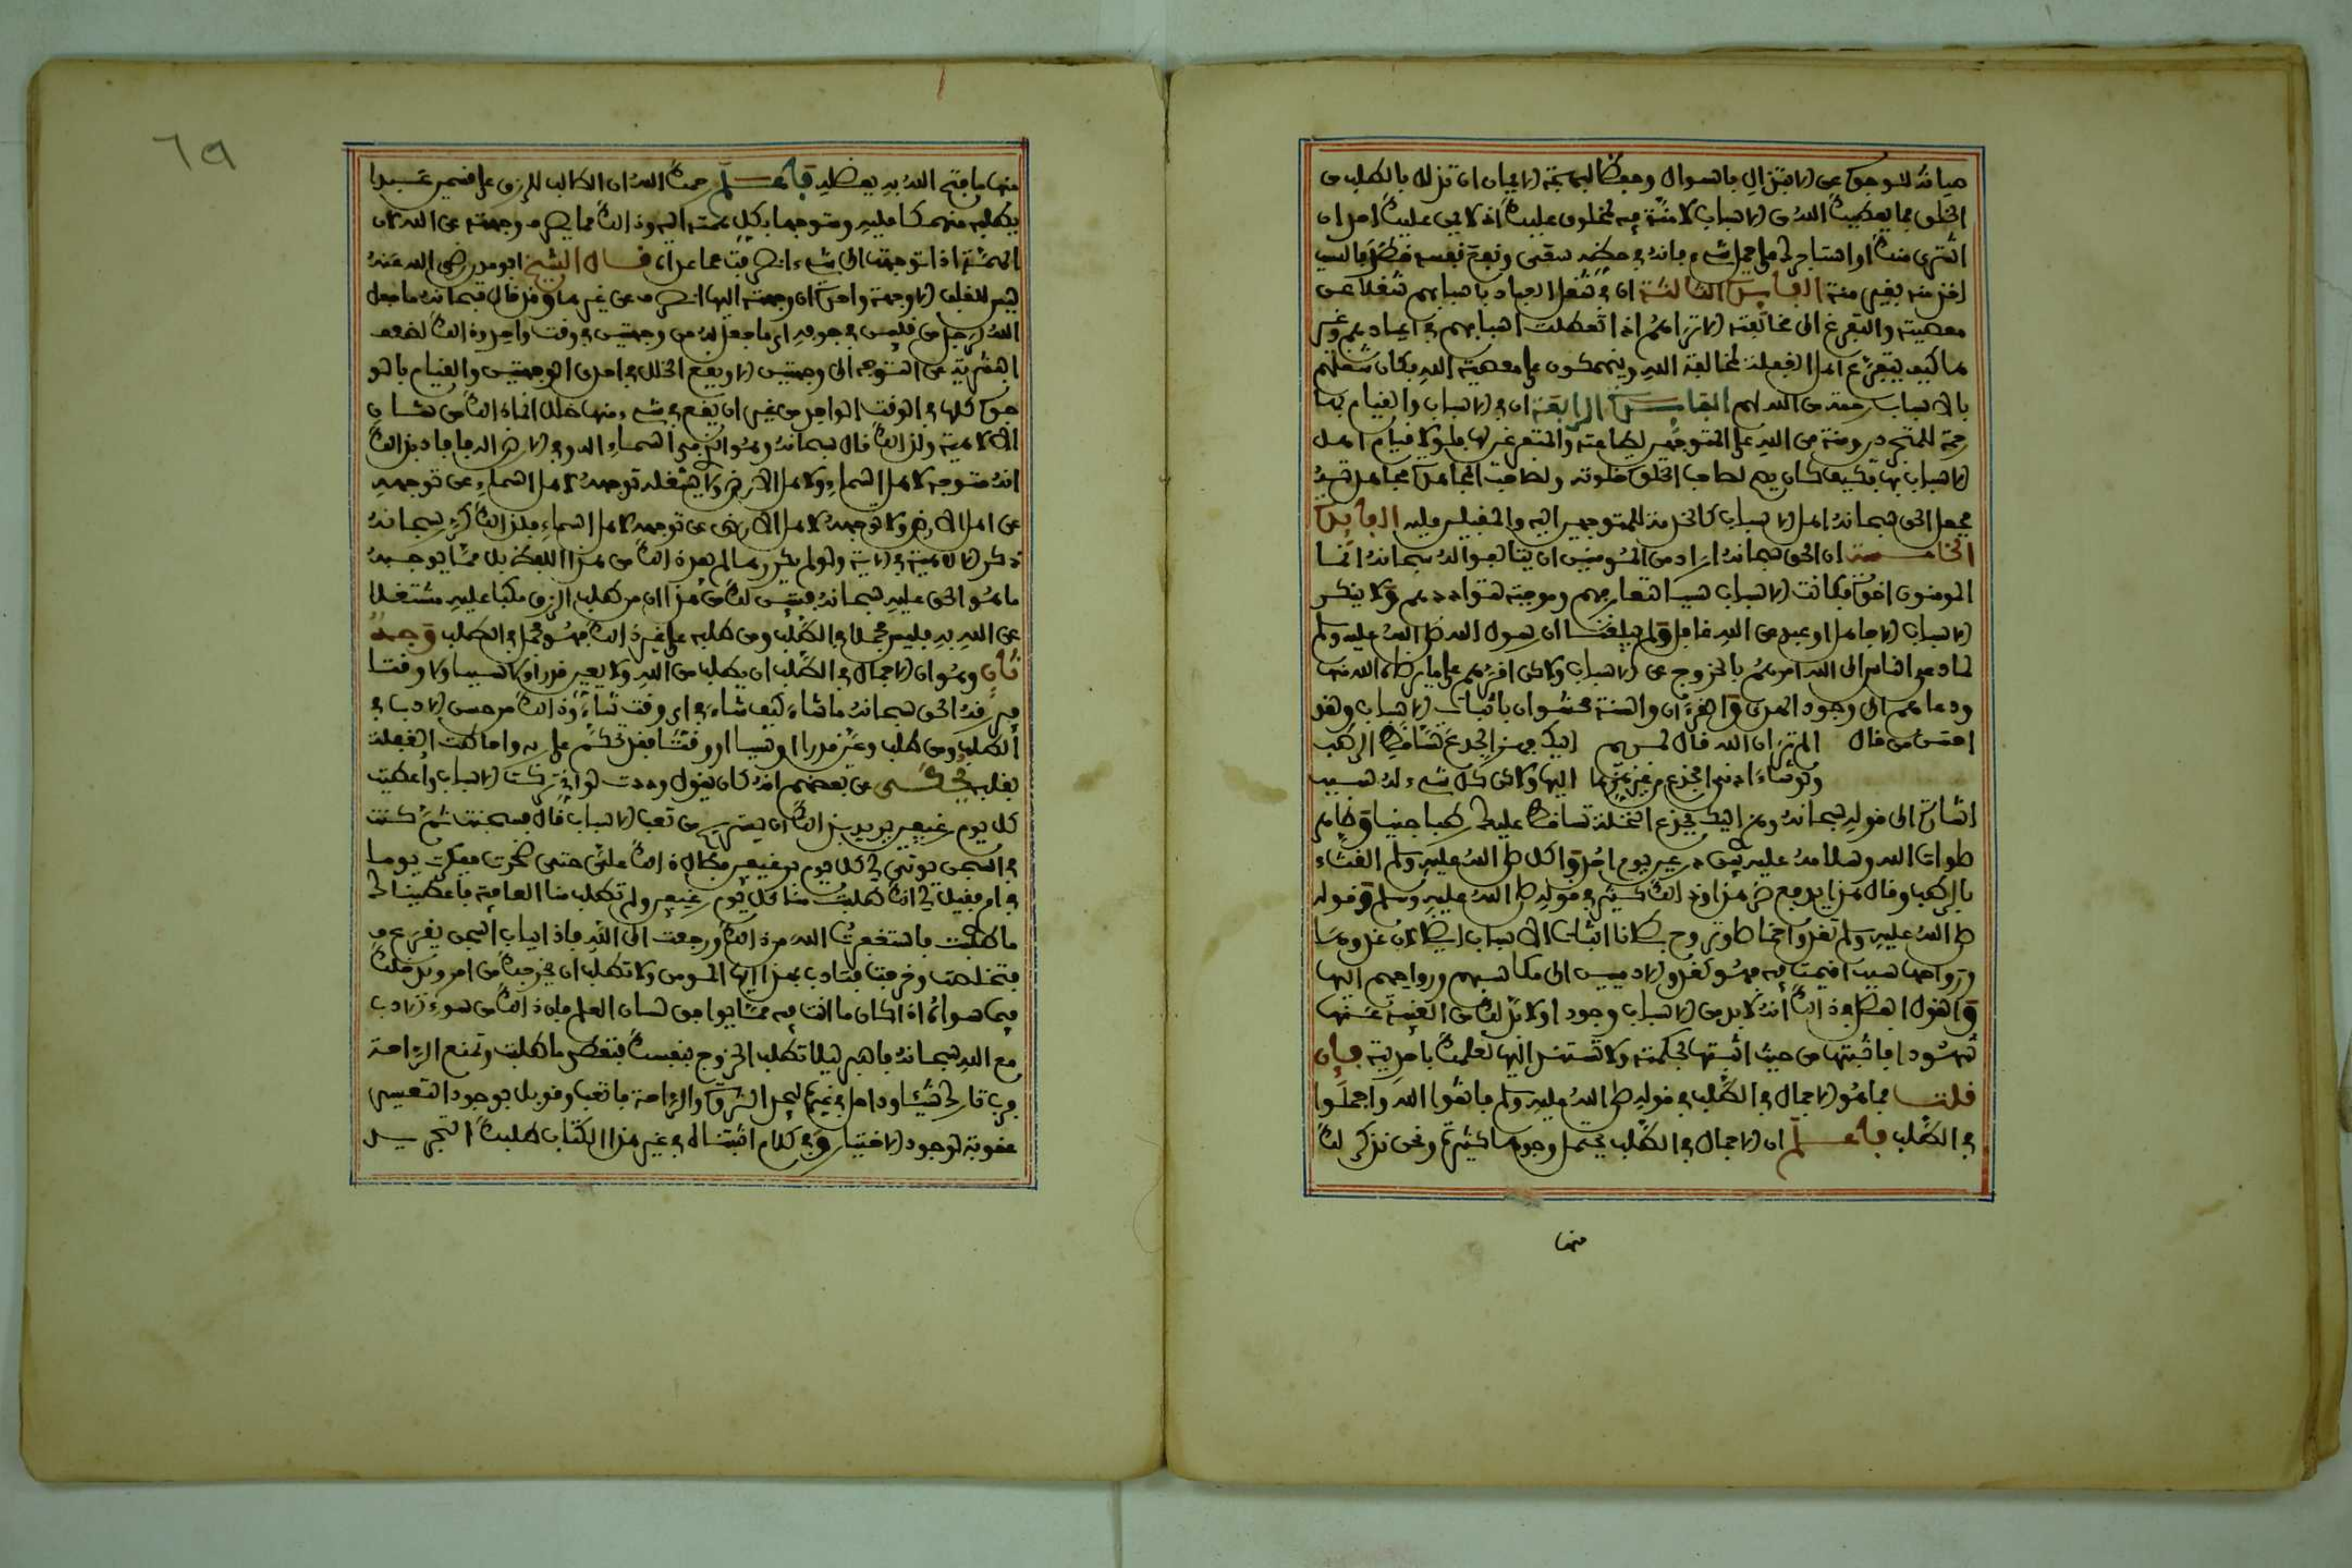 صيانة للوجوه عن الابتذال بالسوال وحفظا لبهجة الايمان ان تزال بالطلب من
الخلق فما يعطيك الله من الاسباب لا منة فيه لمخلوق عليك اذ لا يمن عليك احد ان
اشترى منك او استاجرك على عمل شيء فانه في حظه سعى ونفع نفسه قصد فالسبب
اخذ منه بغير منة الفايدة الثالثة ان في شغل العباد باسبابهم شغلا عن
معصيته والتفرغ الى مخالفته الا تراهم اذا تعطلت اسبابهم في اعيادهم وغير
ها كيف يتفرغ اهل الغفلة لمخالفة الله وينهمكون على معصية الله فكان شغلهم
بالاسباب رحمة من الله لهم الفايدة الرابعة ان في الاسباب والقيام بها
رحمة للمتجردين ومنة من الله على المتوجهين لطاعته والمتفرغين لها ولولا قيام اهل
الاسباب بها فكيف كان يصح لصاحب الخلوة خلوته ولصاحب المجاهدة مجاهدته
فجعل الحق سبحانه اهل الاسباب كالخدمة للمتوجهين اليه والمقبلين عليه الفايدة
الخامسة ان الحق سبحانه اراد من المومنين ان يتالفوا لقوله سبحانه انما
المومنون اخوة فكانت الاسباب سببا لتعارفهم وموجبة لتواددهم ولا ينكر
الاسباب الا جاهل او عبد عن الله غافل ولم يبلغنا ان رسول الله صلى الله عليه وسلم
لما دعوا الناس الى الله امرهم بالخروج عن الاسباب ولاكن اقرهم على ما يرضاه الله منها
ودعاهم الى وجود الهدى والقرءان والسنة محشوان باثبات الاسباب ولقد
احسن من قال الم تر ان الله قال لمريم اليك فهزي الجذع تساقط الرطب
ولو شاء ادنى الجذع من غير هزها اليها ولاكن كل شيء له سبب
اشارة الى قوله سبحانه وهزي اليك بجذع النخلة تساقط عليك رطبا جنيا وظاهر
صلوات الله وسلامه عليه بين درعين يوم احد واكل صلى الله عليه وسلم القثاء
بالرطب وقال هذا يدفع ضر هذا وذلك كثير في قوله صلى الله عليه وسلم وقوله
صلى الله عليه وسلم تغدوا خماصا وتروح بطانا اثبات الاسباب ايضا لان غدوها
ورواحها سبب اقيمت فيه فهو كغدو الادميين الى مكاسبهم ورواحهم اليها
والقول الفصل في ذلك انه لا بد من الاسباب وجودا ولا بد لك من الغيبة عنها
شهودا فاثبتها من حيث اثبتها لحكمته ولا تستند اليها لعلمك باحديته فان
قلت فما هو الاجمال في الطلب في قوله صلى الله عليه وسلم فاتقوا الله واجملوا
في الطلب فاعلم ان الاجمال في الطلب يحتمل وجوها كثيرة ونحن نذكر لك
منها
منها ما فتح الله به بفضله فاعلم رحمك الله ان الطالب للرزق على قسمين عبد
يطلبه منهمكا عليه ومتوجها بكل همته اليه وذلك مما يصرف وجهته عن الله لان
الهمة اذا توجهت الى شيء انصرفت عما عداه قال الشيخ ابو مدين رضي الله عنه
ليس للقلب الا وجهة واحدة ان وجهته اليها انصرف عن غيرها وقد قال سبحانه ما جعل
الله لرجل من قلبين في جوفه اي ما جعل له من وجهتين في وقت واحد وذلك لضعف
البشرية عن التوجه الى وجهتين الا ويقع الخلل في احدى الوجهتين والقيام بالو
جوه كلها في الوقت الواحد من غير ان يقع في شيء منها خلل انما ذلك من شان
الالاهية ولذلك قال سبحانه وهو الذي في السماء اله وفي الارض اله فافاد بذلك
انه متوجه لاهل السماء ولاهل الارض ولا يشغله توجهه لاهل السماء عن توجهه
عن اهل الارض ولا توجهه لاهل الارض عن توجهه لاهل السماء فلذلك كرر سبحانه
ذكر الالاهية في الاية ولو لم يكررها لم يفد ذلك من هذا اللفظ بل مما يوجبه
ما هو الحق عليه سبحانه فتبين لك من هذا ان من طلب الرزق مكبا عليه مشتغلا
عن الله به فليس مجملا في الطلب ومن طلبه على غير ذلك فهو مجمل في الطلب وجه
ثان وهو ان الاجمال في الطلب ان يطلب من الله ولا يعين قدرا ولا سببا ولا وقتا
فيرزقه الحق سبحانه ما شاء كيف شاء في اي وقت شاء وذلك من حسن الادب في
الطلب ومن طلب وعين قدرا او سببا او وقتا فقد تحكم على ربه واحاطت الغفلة
بقلبه يحكى عن بعضهم انه كان يقول وددت لو اني تركت الاسباب واعطيت
كل يوم رغيفين يريد بذلك ان يستريح من تعب الاسباب قال فسجنت ثم كنت
في السجن يوتى لي كل يوم برغيفين فطال ذلك علي حتى ضجرت ففكرت يوما
في امري فقيل لي انك طلبت منا كل يوم رغيفين ولم تطلب منا العافية فاعطيناك
ما طلبت فاستغفرت الله من ذلك ورجعت الى الله فاذا بباب السجن يقرع
فتخلصت وخرجت فتادب بهذا ايها المومن ولا تطلب ان يخرجك من امر ويدخلك
فيما سواه اذا كان ما انت فيه مما يوافق لسان العلم فان ذلك من سوء الادب
مع الله سبحانه فاصبر ليلا تطلب الخروج بنفسك فتعطى ما طلبت وتمنع الراحة
فرب تارك شيئا وداخل في غيره ليجد الثروة والراحة فاتعب وقوبل بوجود التعسير
عقوبة لوجود الاختيار وفي كلام اثبتناه في غير هذا الكتاب طلبك التجريد